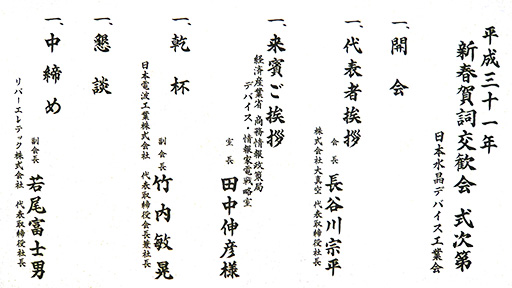 平成三十一年
新春賀詞交歓会 式次第
日本水晶デバイス工業会
一、開会
一、代表者挨拶
会長 長谷川宗平
株式会社大真空 代表取締役社長
一、来賓ご挨拶
経済産業省 商務情報政策局
デバイス・情報家電戦略室
室長 田中伸彦様
一、乾杯
副会長 竹内敏晃
日本電波工業株式会社 代表取締役会長兼社長
一、懇談
一、中締め
副会長 若尾富士男
リバーエレテック株式会社 代表取締役社長